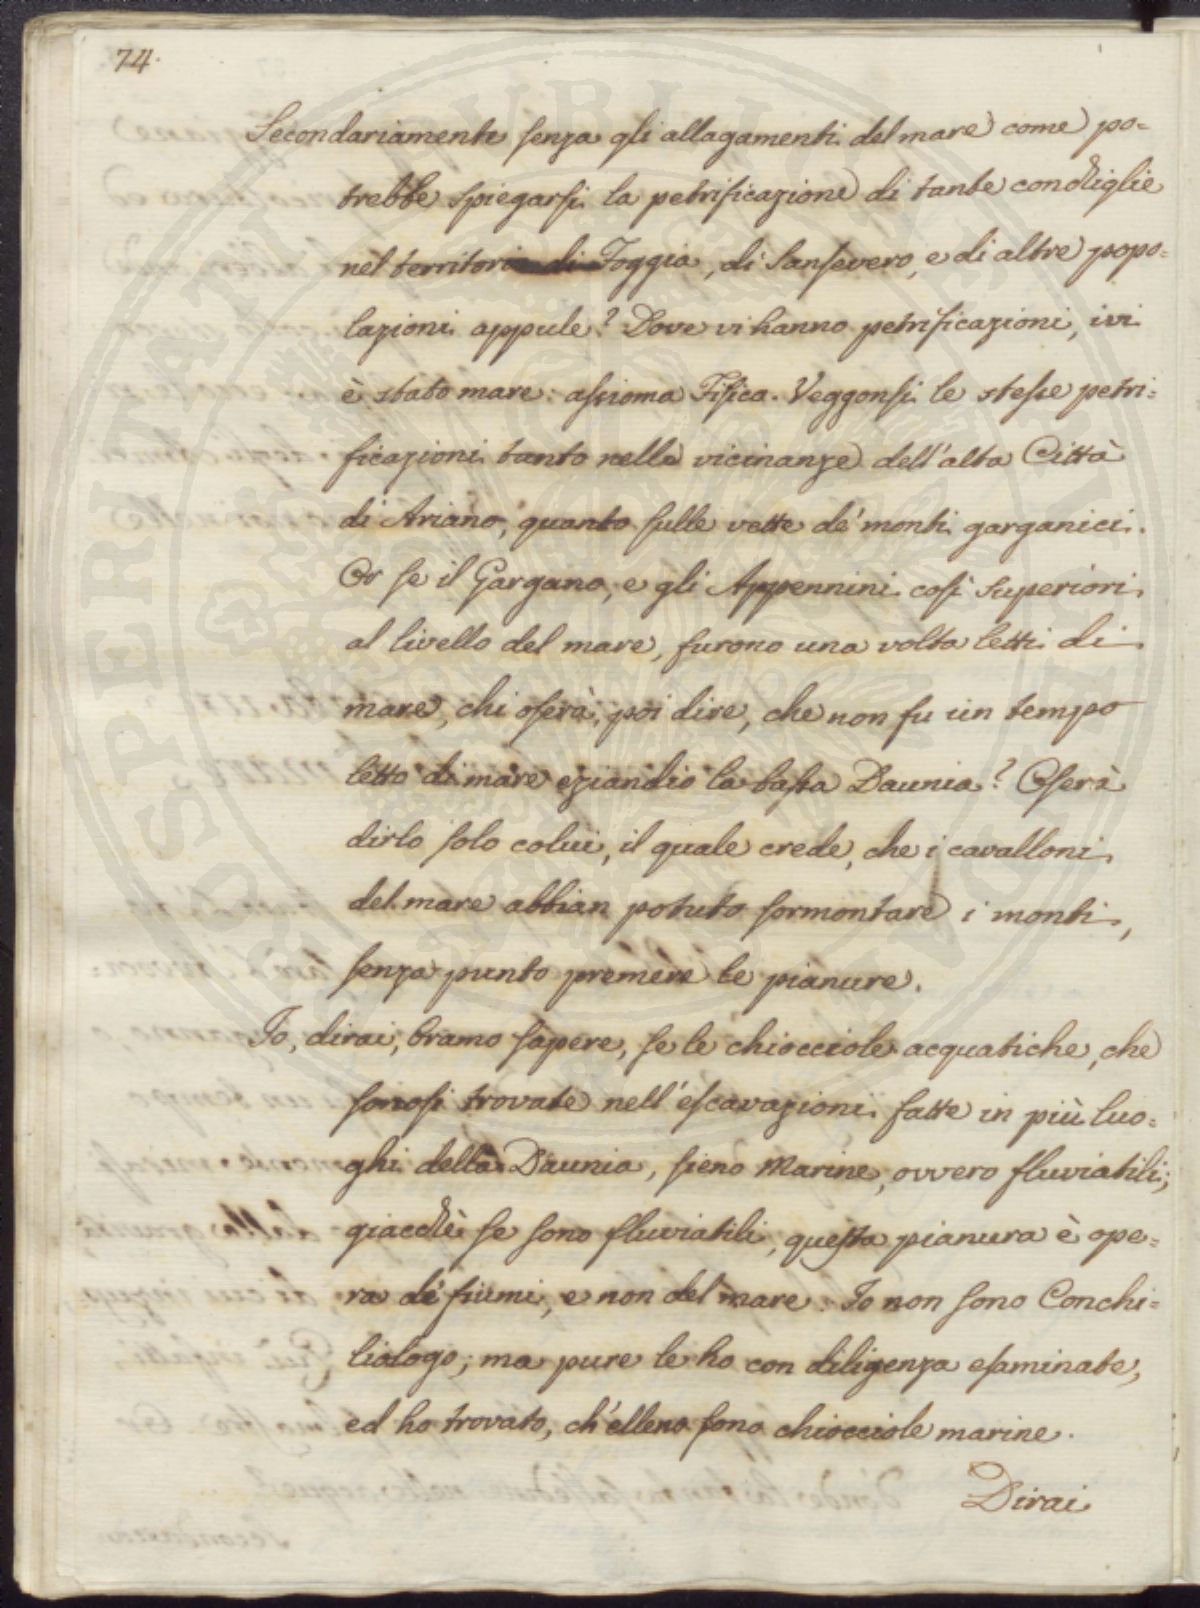 74.
Secondariamente senza gli allagamenti del mare come po=
trebbe spiegarsi la petrificazione di tante conchiglie
nel territorio di Foggia, di Sansevero, e di altre popo=
lazioni appule? Dove vi hanno petrificazioni, ivi
è stato mare: assioma Fisica. Veggonsi le stesse petri=
ficazioni tanto nelle vicinanze dell'alta Città
di Ariano, quanto sulle vette de' monti garganici.
Or se il Gargano, e gli Appennini così superiori
al livello del mare, furono una volta letti di
mare, chi oserà poi dire, che non fu un tempo
letto di mare eziandio la bassa Daunia? Oserà
dirlo solo colui, il quale crede, che i cavalloni
del mare abbian potuto sormontare i monti,
senza punto premere le pianure.
Io, dirai, bramo sapere, se le chiocciole acquatiche, che
sonosi trovate nell'escavazioni fatte in più luo=
ghi della Daunia, sieno Marine, ovvero fluviatili;
giacchè se sono fluviatili, questa pianura è ope=
ra de' fiumi, e non del mare. Io non sono Conchi=
liologo; ma pure le ho con diligenza esaminate,
ed ho trovato, ch'elleno sono chiocciole marine.
Dirai